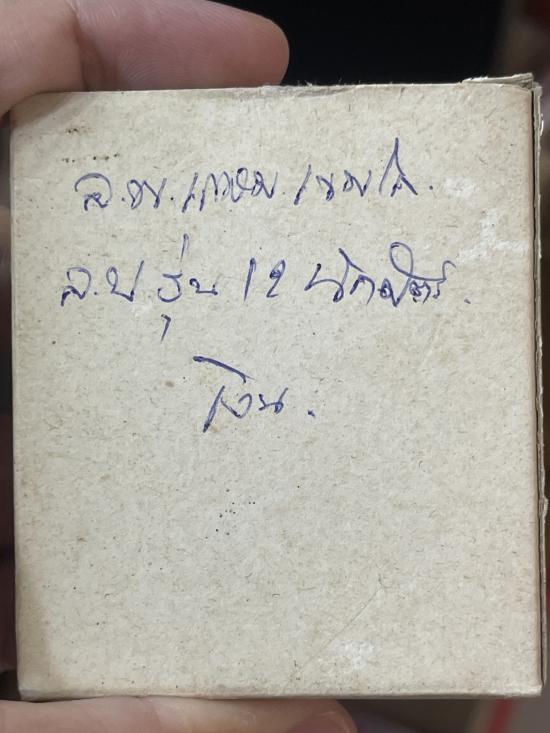 ล.พ.เกษม เขมโก.
ล.ป รุ่น 12 นักษัตร.
เงิน.